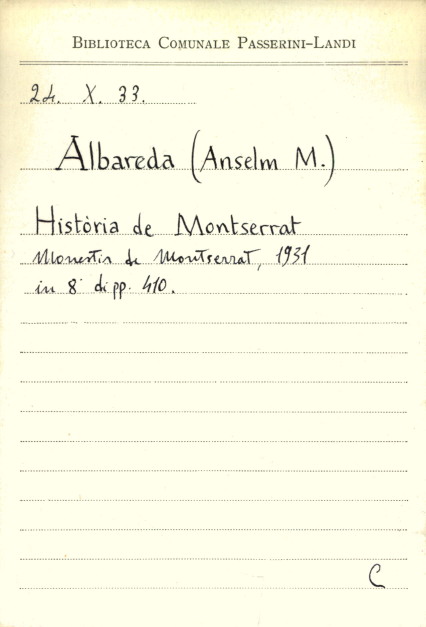 BIBLIOTECA COMUNALE PASSERINI-LANDI
24. X. 33.
Albareda (Anselm M.)
Història de Montserrat
Monestir de Montserrat, 1931
in 8° di pp. 410.
C